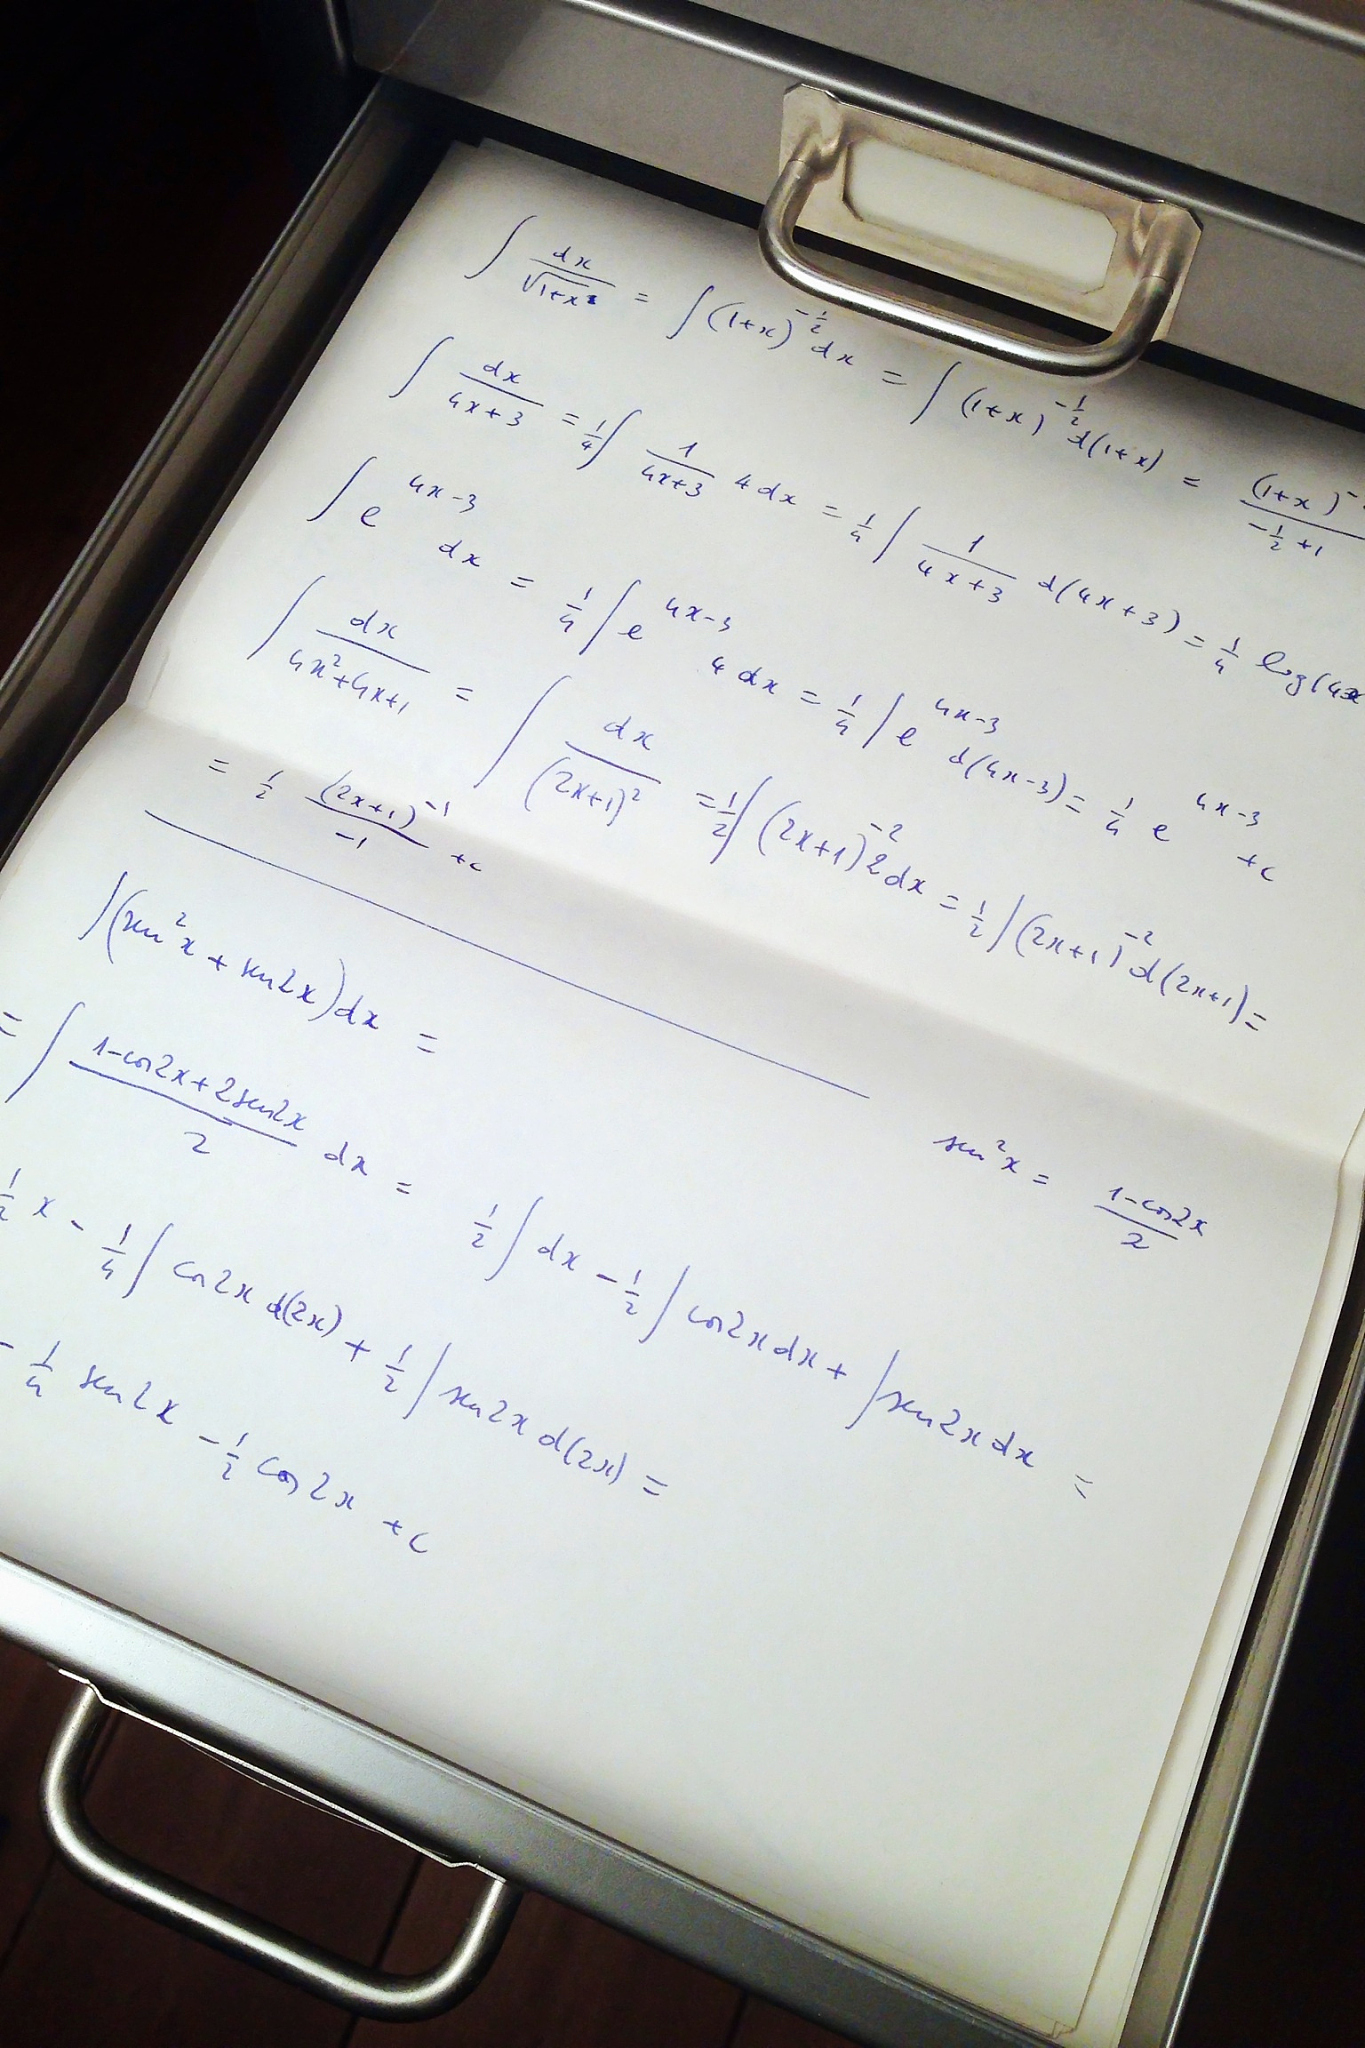 ∫ dx/√(1+x) = ∫ (1+x)^(-1/2) dx = ∫ (1+x)^(-1/2) d(1+x) = (1+x)^-/(-1/2 +1)
∫ dx/(4x+3) = 1/4 ∫ 1/(4x+3) 4dx = 1/4 ∫ 1/(4x+3) d(4x+3) = 1/4 log(4x
∫ e^(4x-3) dx = 1/4 ∫ e^(4x-3) 4dx = 1/4 ∫ e^(4x-3) d(4x-3) = 1/4 e^(4x-3) +c
∫ dx/(4x²+4x+1) = ∫ dx/(2x+1)² = 1/2 ∫ (2x+1)^(-2) 2dx = 1/2 ∫ (2x+1)^(-2) d(2x+1) =
= 1/2 (2x+1)^(-1)/(-1) +c
∫(sen²x + sen2x)dx =
sen²x = (1-cos2x)/2
= ∫ (1-cos2x+2sen2x)/2 dx = 1/2 ∫ dx - 1/2 ∫ cos2x dx + ∫ sen2x dx =
1/2 x - 1/4 ∫ cos2x d(2x) + 1/2 ∫ sen2x d(2x) =
- 1/4 sen2x - 1/2 cos2x +c